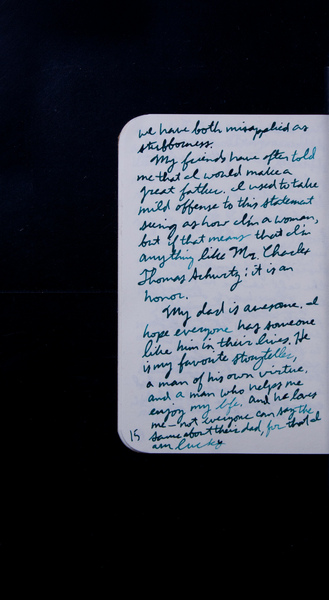 we have both misapplied as
stubborness.
My friends have often told
me that I would make a
great father. I used to take
mild offense to this statement
seeing as how I'm a woman,
but if that means that I'm
anything like Mr. Charles
Thomas Schwartz; it is an
honor.
My dad is awesome. I
hope everyone has someone
like him in their lives. He
is my favorite storyteller,
a man of his own virtue,
and a man who helps me
enjoy my life. And he loves
me – not everyone can say the
same about their dad, for that I
am lucky
15